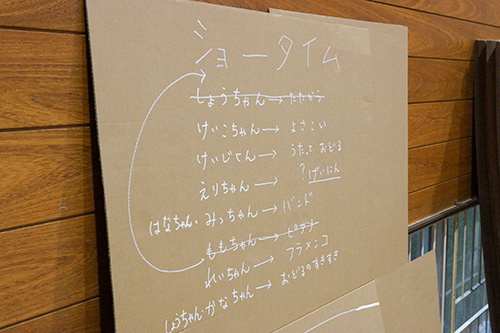 ショータイム
しょうちゃん→たたかう
けいこちゃん→よさこい
けいじくん→うたって おどる
えりちゃん→?げいにん
はなちゃん・みっちゃん→バンド
ももちゃん→ピアノ
れいちゃん→フラメンコ
しょうちゃん・かなちゃん→おどるのすきすき